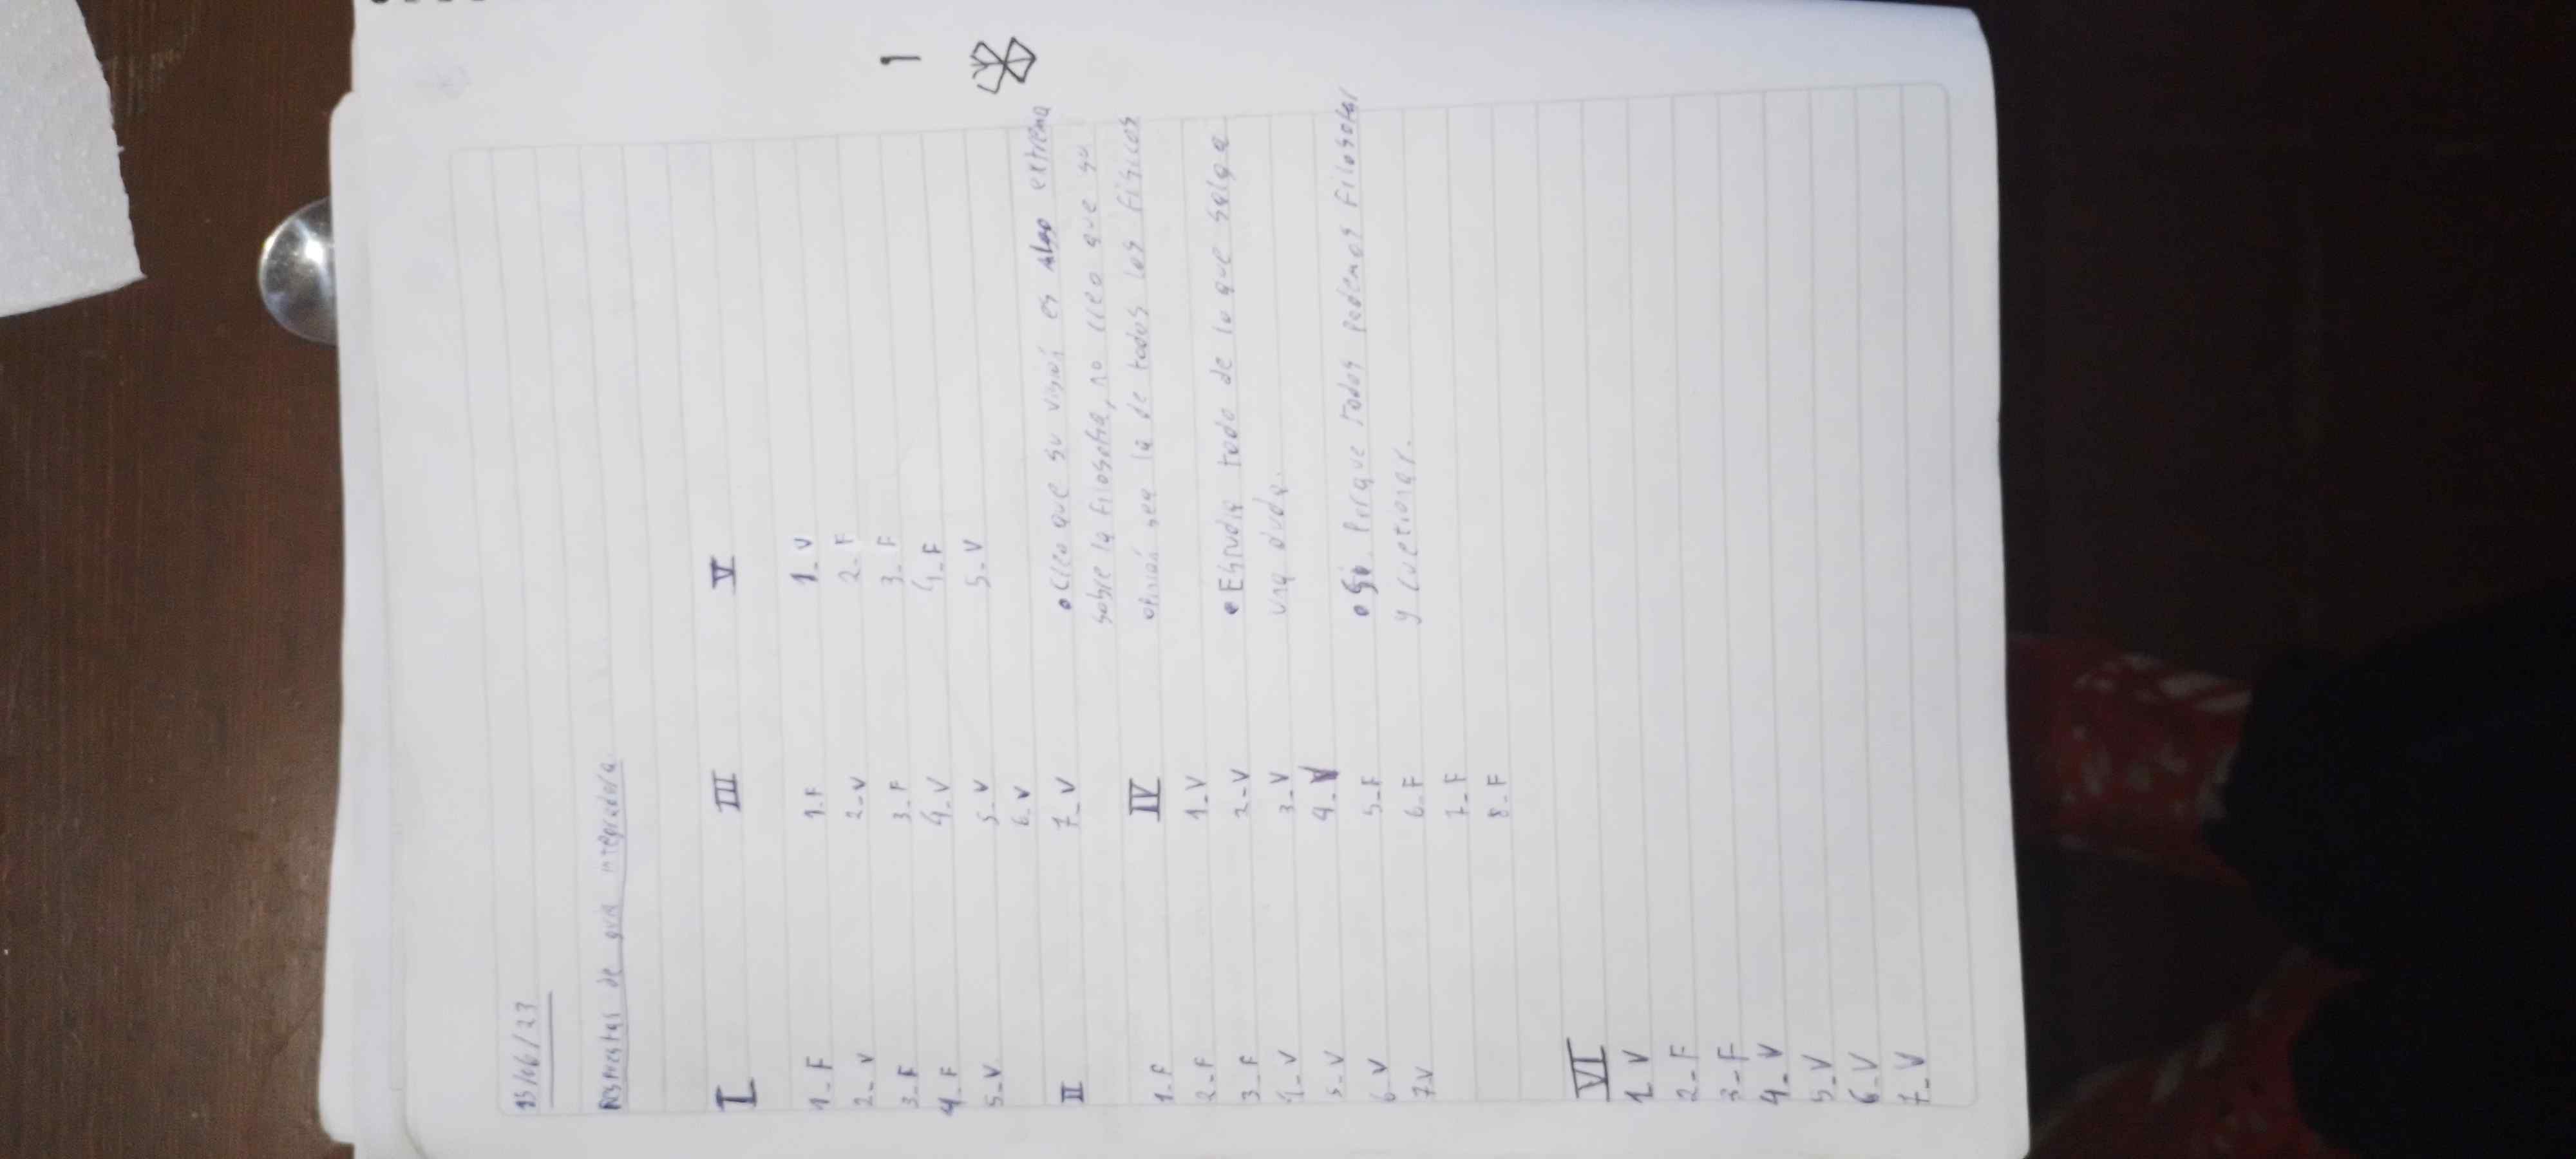 13/06/23
Respuestas de guia integradora.
I
1_F
2_V
3_F
4_F
5_V
II
1_F
2_F
3_F
4_V
5_V
6_V
7_V
III
1_F
2_V
3_F
4_V
5_V
6_V
7_V
IV
1_V
2_V
3_V
4_V
5_F
6_F
7_F
8_F
V
1_V
2_F
3_F
4_F
5_V
• Creo que su visión es algo extrema
sobre la filosofia, no creo que su
opinión sea la de todos los físicos
• Estudia todo de lo que salga
una duda.
• Si. Porque todos podemos filosofar
y cuetionar.
VI
1_V
2_F
3_F
4_V
5_V
6_V
7_V
1